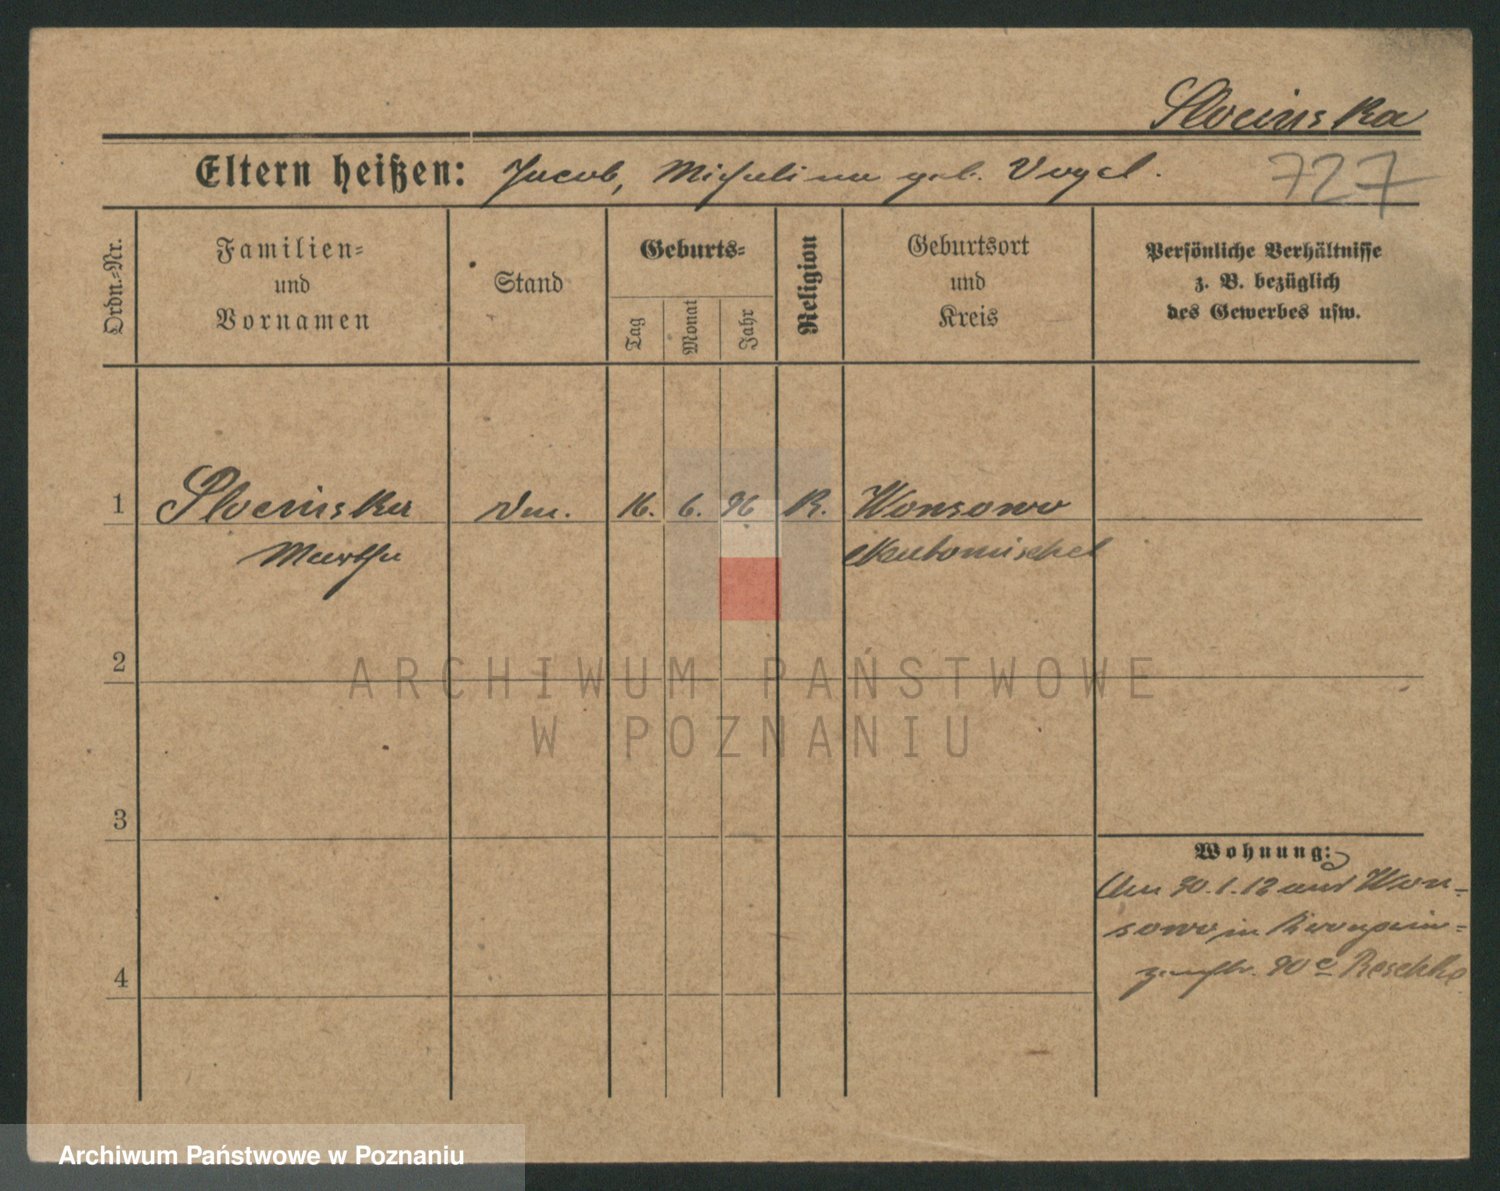 Slocinska
Eltern heißen: Jacob, Michalina geb. Vogel.
727
Ordn.-Nr.
Familien-
und
Vornamen
Stand
Geburts-
Tag
Monat
Jahr
Religion
Geburtsort
und
Kreis
Persönliche Verhältnisse
z. B. bezüglich
des Gewerbes usw.
1 Slocinska 16. 6. 96 R. Wonsowo
Martha Neutomischel
2
ARCHIWUM PAŃSTWOWE
W POZNANIU
3
Wohnung:
1.12 aus Won-
sowo in Kronprin-
zenstr. 90c Reschke
4
Archiwum Państwowe w Poznaniu